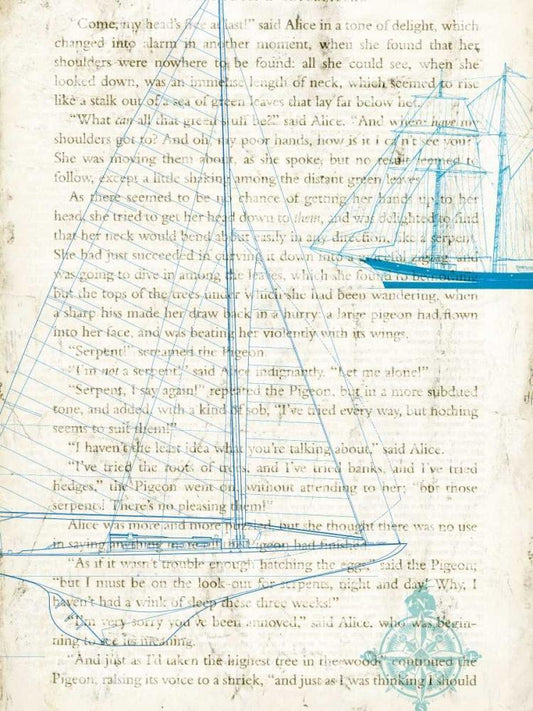 "Come, my head's free at last!" said Alice in a tone of delight, which
changed into alarm in another moment, when she found that her
shoulders were nowhere to be found: all she could see, when she
looked down, was an immense length of neck, which seemed to rise
like a stalk out of a sea of green leaves that lay far below her.
"What can all that green stuff be?" said Alice. "And where have my
shoulders got to? And oh, my poor hands, how is it I can't see you?"
She was moving them about, as she spoke, but no result seemed to
follow, except a little shaking among the distant green leaves.
As there seemed to be no chance of getting her hands up to her
head, she tried to get her head down to them, and was delighted to find
that her neck would bend about easily in any direction, like a serpent.
She had just succeeded in curving it down into a graceful zigzag, and
was going to dive in among the leaves, which she found to be nothing
but the tops of the trees under which she had been wandering, when
a sharp hiss made her draw back in a hurry: a large pigeon had flown
into her face, and was beating her violently with its wings.
"Serpent!" screamed the Pigeon.
"I'm not a serpent!" said Alice indignantly. "Let me alone!"
"Serpent, I say again!" repeated the Pigeon, but in a more subdued
tone, and added, with a kind of sob, "I've tried every way, but nothing
seems to suit them!"
"I haven't the least idea what you're talking about," said Alice.
"I've tried the roots of trees, and I've tried banks, and I've tried
hedges," the Pigeon went on, without attending to her; "but those
serpents! There's no pleasing them!"
Alice was more and more puzzled, but she thought there was no use
in saying anything more till the Pigeon had finished.
"As if it wasn't trouble enough hatching the eggs," said the Pigeon;
"but I must be on the look-out for serpents, night and day! Why, I
haven't had a wink of sleep these three weeks!"
"I'm very sorry you've been annoyed," said Alice, who was begin-
ning to see its meaning.
"And just as I'd taken the highest tree in the wood," continued the
Pigeon, raising its voice to a shriek, "and just as I was thinking I should